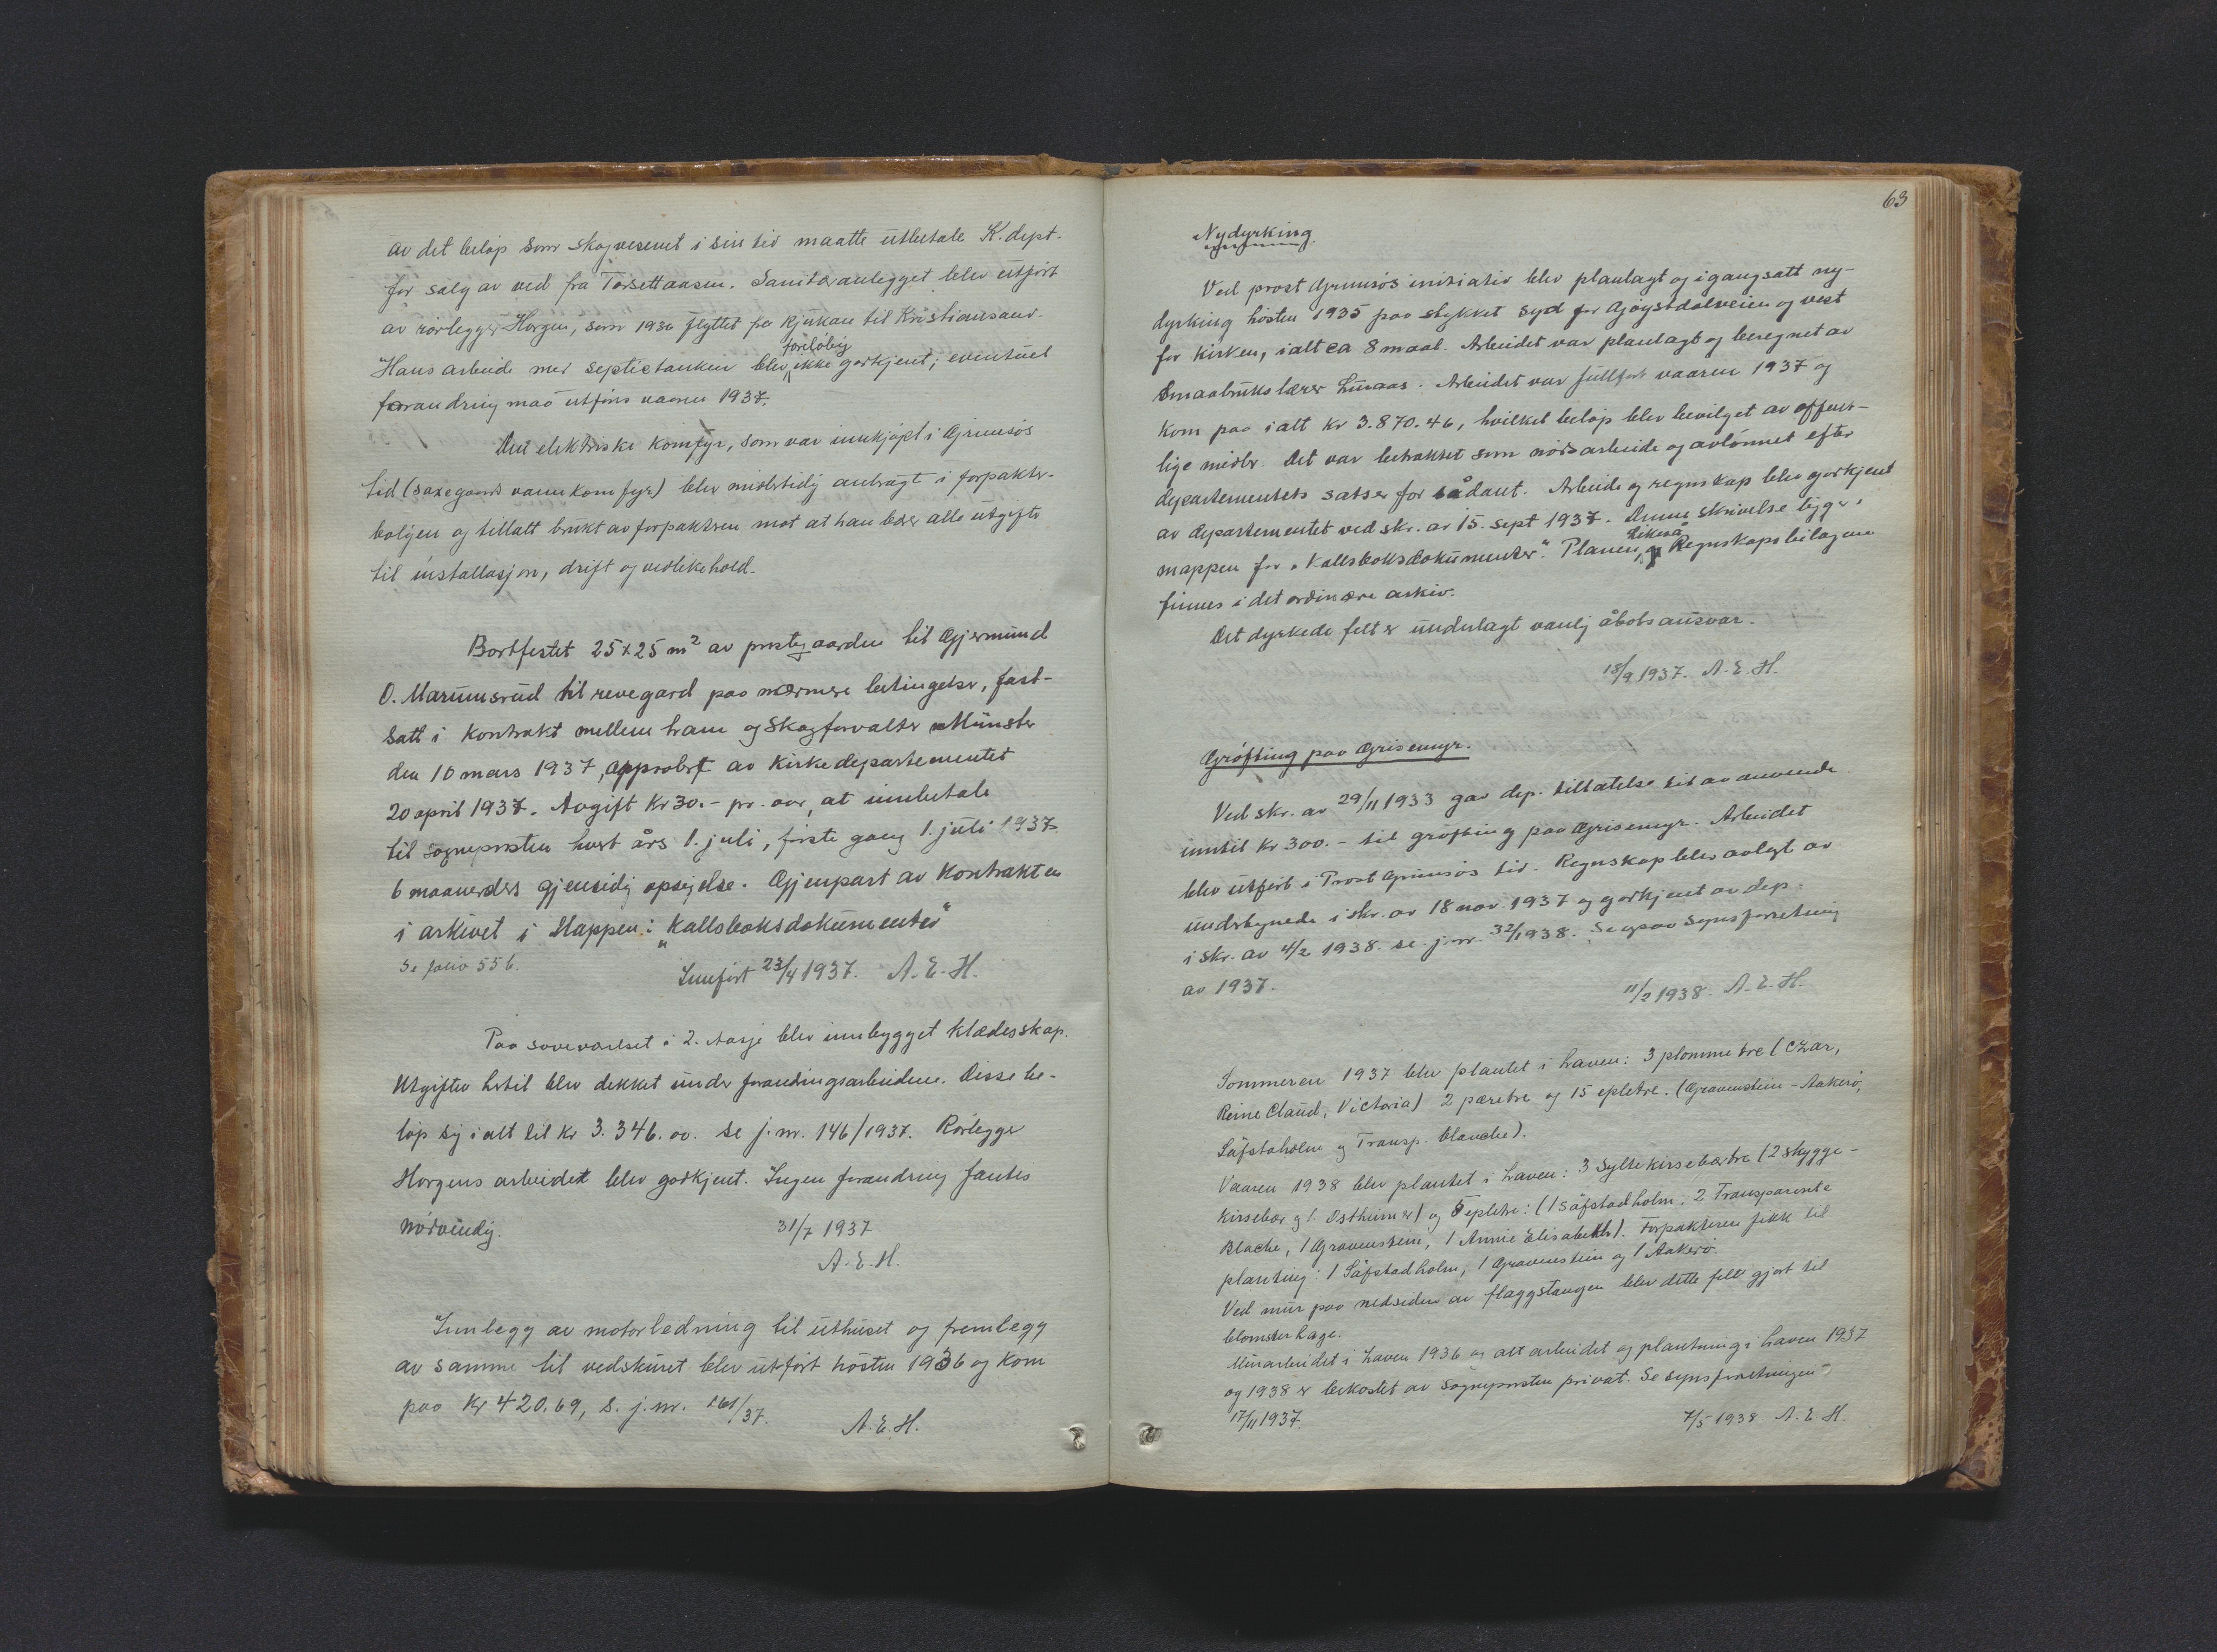 av det beløp som skogvesenet i sin tid maatte utbetale K. dept.
for salg av ved fra Torsettaasen. Sanitæranlegget blev utført
av rørlegger Horgen, som 1936 flyttet fra Rjukan til Kristiansand.
foreløbig
Hans arbeide med septictanken blev ikke godkjent; eventuel
forandring maa utføres vaaren 1937.
Den elektriske komfyr, som var innkjøpt i Grimsøs
tid (Saxegaards vannkomfyr) blev midlertidig anbragt i forpakter-
boligen og tillatt brukt av forpakteren mot at han bærer alle utgifter
til installasjon, drift og vedlikehold.
Bortfestet 25 x 25 m² av prestegaarden til Gjermund
O. Marumsrud til revegard paa nærmere betingelser, fast-
satt i kontrakt mellem ham og Skogforvalter Münster
den 10 mars 1937, approbert av Kirkedepartementet
20 april 1937. Avgift Kr 30.- pr. aar, at innbetale
til sognepresten hvert års 1. juli, første gang 1. juli 1937.
6 maaneders gjensidig opsigelse. Gjenpart av Kontrakten
i arkivet i Mappen: "Kallsboksdokumenter"
Se folio 55 b.
Innført 23/4 1937. A. E. H.
Paa soveværelset i 2. etasje blev innbygget klædesskap.
Utgifter hertil blev dekket under forandringsarbeidene. Disse be-
løp sig i alt til Kr 3.346.00. se j. nr. 146/1937. Rørlegger
Horgens arbeidet blev godkjent. Ingen forandring fantes
nødvendig.
31/7 1937
A. E. H.
Innlegg av motorledning til uthuset og fremlegg
av samme til vedskuret blev utført høsten 1936 og kom
paa Kr 420.69, s. j. nr. 161/37.
A. E. H.
63
Nydyrking
Ved prost Grimsøs initiativ blev planlagt og igangsatt ny-
dyrking høsten 1935 paa stykket syd for Gjøystdalveien og vest
for kirken, ialt ca 8 maal. Arbeidet var planlagt og beregnet av
Smaabrukslærer Luraas. Arbeidet var fullført vaaren 1937 og
kom paa ialt kr 3.870.46, hvilket beløp blev bevilget av offent-
lige midler. Det var betraktet som nødsarbeide og avlønnet efter
departementets satser for sådant. Arbeide og regnskap blev godkjent
av departementet ved skr. av 15. sept 1937. Denne skrivelse ligger i
likeså
mappen for "Kallsboksdokumenter". Planen, og Regnskapsbilagene
finnes i det ordinære arkiv.
Det dyrkede felt er underlagt vanlig åbotsansvar.
18/9 1937. A. E. H.
Grøfting paa Grisemyr.
Ved skr. av 29/11 1933 gav dep. tillatelse til av anvende
inntil kr 300.- til grøfting paa Grisemyr. Arbeidet
blev utført i Prost Grimsøs tid. Regnskap blev avlagt av
undertegnede i skr. av 18 nov. 1937 og godkjent av dep.
i skr. av 4/2 1938. se j. nr. 32/1938. Se ogsaa Synsforretning
av 1937.
11/2 1938. A. E. H.
Sommeren 1937 blev plantet i haven: 3 plommetre (Czar,
Reine Claud, Victoria) 2 pæretre og 15 epletre. (Gravenstein - Aakerø,
Säfstaholm og Transp. blanche).
Vaaren 1938 blev plantet i haven: 3 Syltekirsebærtre (2 skygge-
kirsebær og 1 Ostheimer) og 5 epletre: (1 Säfstadholm, 2 Transparente
Blache, 1 Gravenstein, 1 Annie Elisabeth). Forpakteren fikk til
planting: 1 Säfstadholm, 1 Gravenstein og 1 Aakerø.
Ved mur paa nedsiden av flaggstangen blev dette felt gjort til
blomsterhage.
Murarbeidet i haven 1936 og alt arbeidet og plantning i haven 1937
og 1938 er bekostet av sognepresten privat. Se synsforretningen
17/11 1937.
7/5 1938 A. E. H.